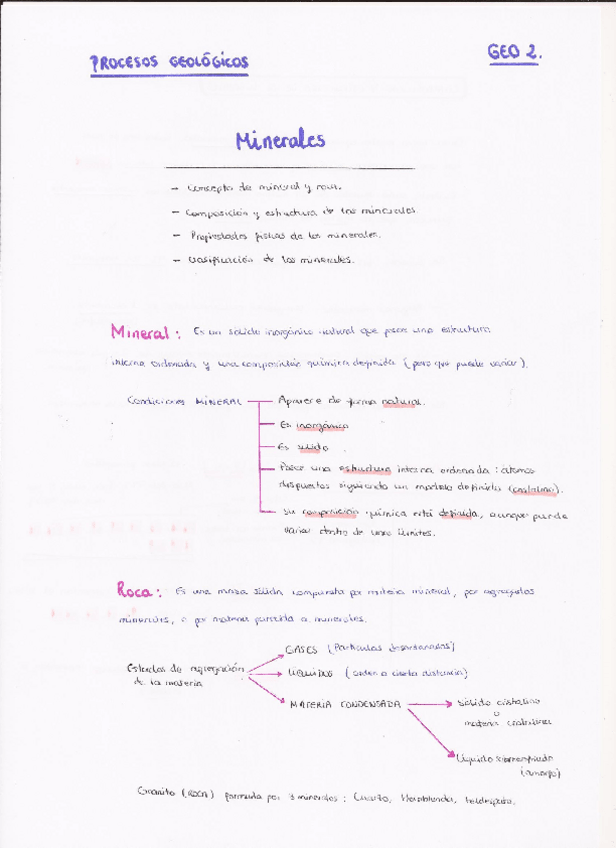 PROCESOS GEOLÓGICOS
GEO 2.
Minerales
- Concepto de mineral y roca.
- Composición y estructura de los minerales
- Propiedades físicas de los minerales.
- Clasificación de los minerales.
Mineral: Es un sólido inorgánico natural que posee una estructura
interna ordenada y una composición química definida (pero que puede variar).
Condiciones MINERAL
Aparece de forma natural.
Es inorgánico
Es sólido
Posee una estructura interna ordenada: átomos
dispuestos siguiendo un modelo definido (cristalino).
Su composición química está definida, aunque puede
variar dentro de unos límites.
Roca: Es una masa sólida compuesta por materia mineral, por agregados
minerales, o por materia parecida a minerales.
Estados de agregación
de la materia
GASES (Partículas desordenadas)
LÍQUIDOS (orden a cierta distancia)
MATERIA CONDENSADA
Sólido cristalino
o
materia cristalina
Líquido
(amorfo)
Granito (ROCA) formada por 3 minerales: Cuarzo, Hornblenda, feldespato.